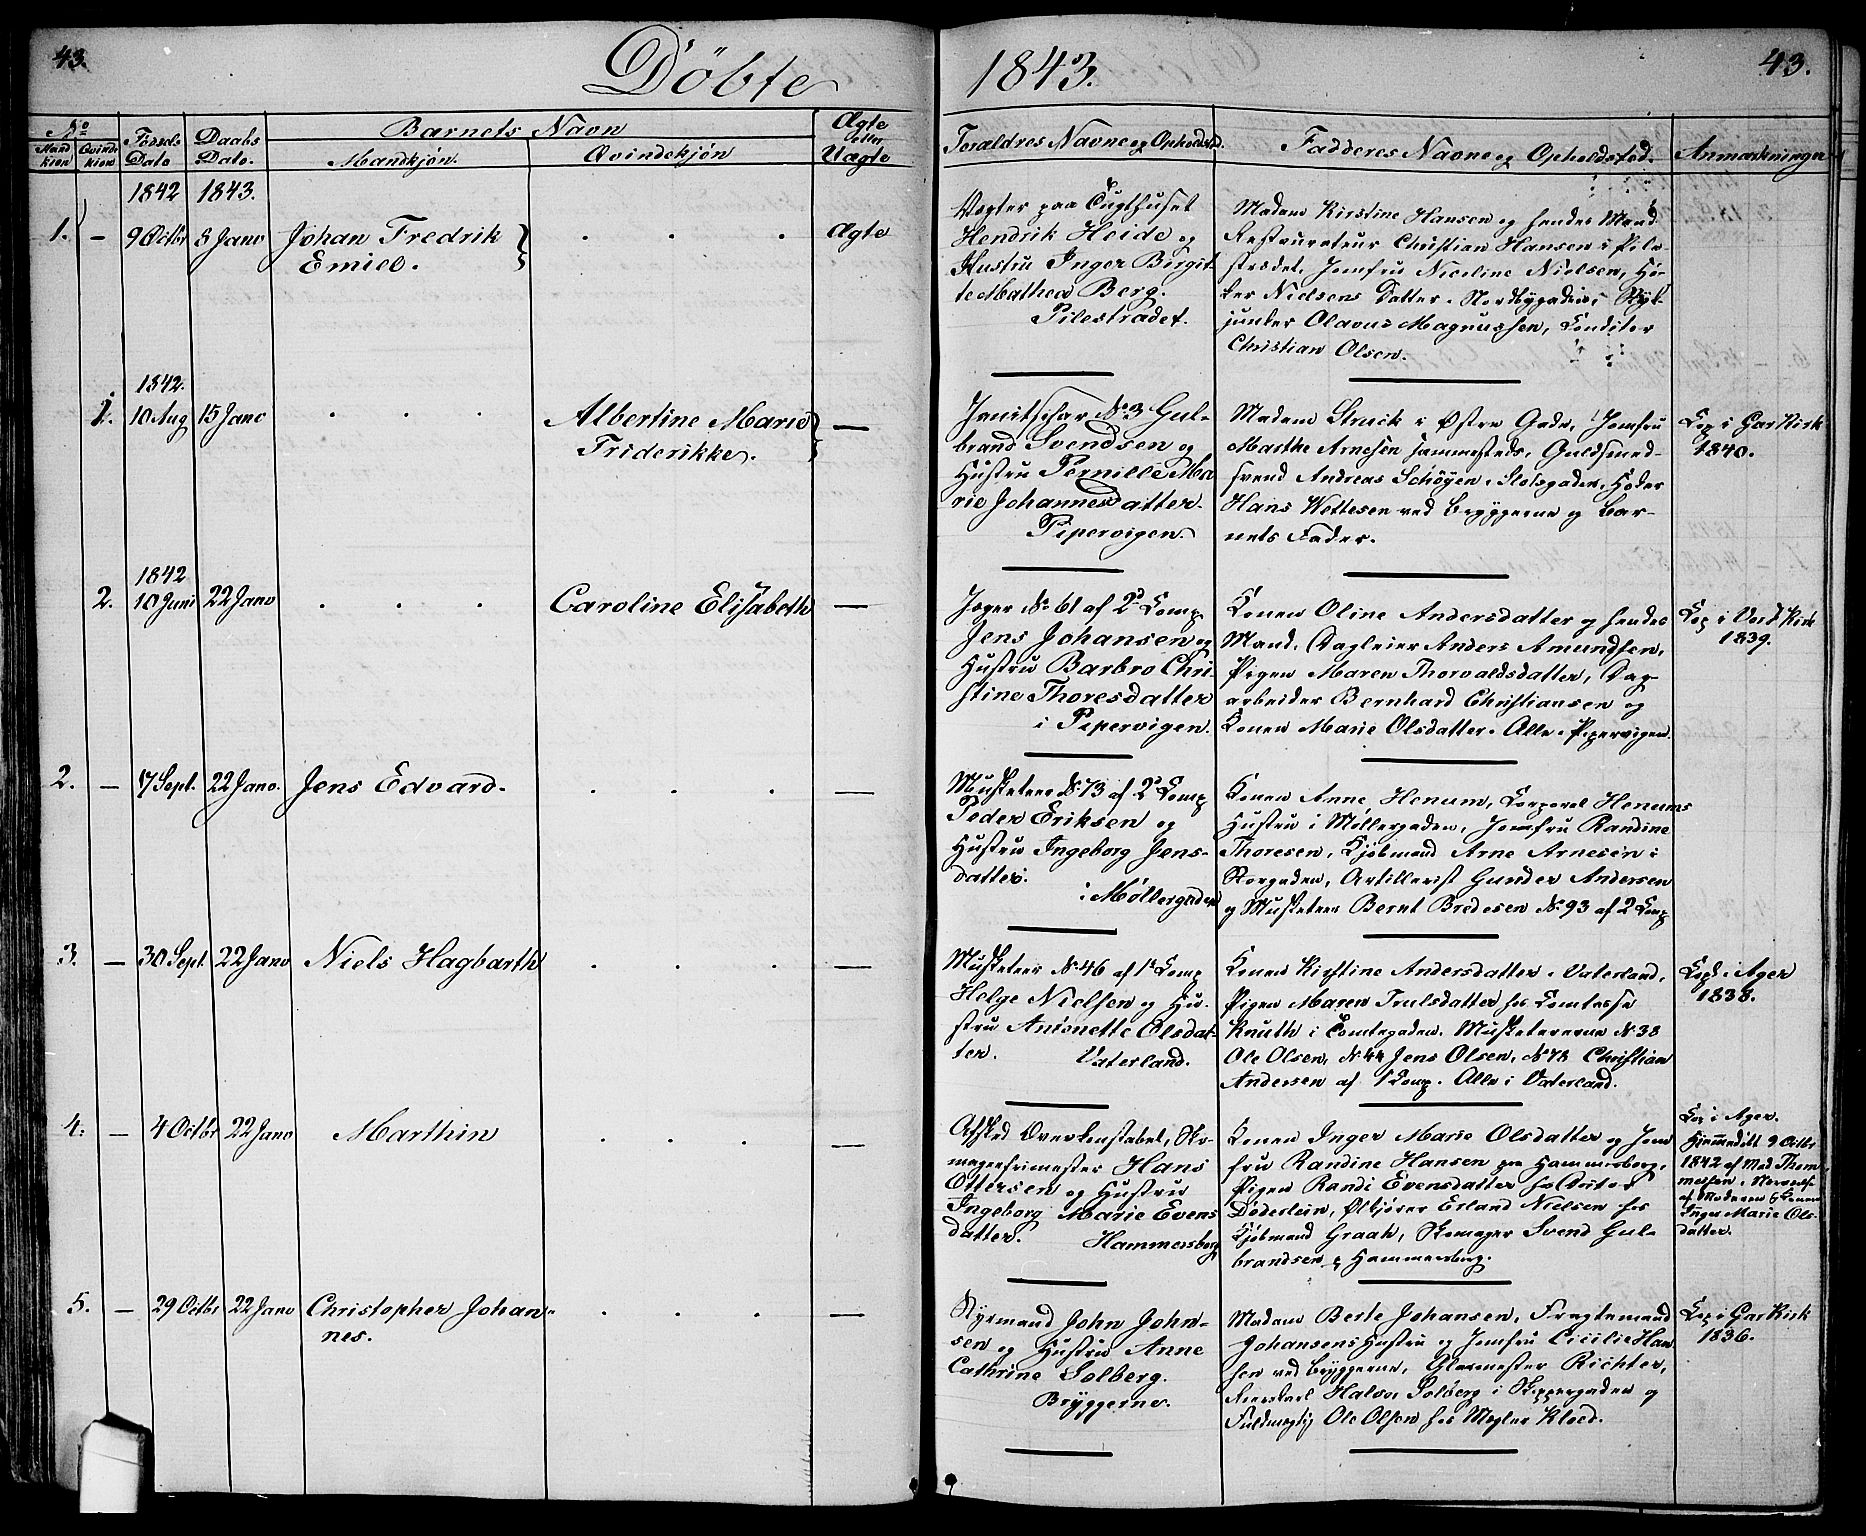 43.
Döbte
1843.
43.
No
Mand kion
Qvinde kion
Fødsels Dato
Daabs Dato.
Barnets Navn
Mandkjøn.
Qvindekjøn
Ægte eller Uægte
Forældres Navne og Opholdsted.
Fadderes Navne og Opholdsted.
Anmærkninger
1842 1843.
1. - 9 Octbr 8 Janv Johan Fredrik
Emiel.
Ægte
Vægter paa Tugthuset
Hendrik Heide og
Hustru Inger Birgit-
te Mathea Berg.
Pilestrædet.
Madam Kirstine Hansen og hendes Mand
Restaurateur Christian Hansen i Pile-
strædet, Jomfru Nicoline Nielsen, Hö-
ker Nielsens Datter i Nordbygaden,
junker Olavus Magnussen, Conditor
Christian Olsen.
1842.
1. 10 Aug 15 Janv
Albertine Marie
Friderikke.
—
Janitschar No 3 Gul-
brand Svendsen og
Hustru Pernille Ma-
rie Johannesdatter.
Pipervigen.
Madam Struck i Østre Gade, Jomfru
Marthe Arnesen sammesteds, Guldsmed-
svend Andreas Schöyen i Slotsgaden,
Hans Wettesen ved Bryggerne og Bar-
nets Fader.
Cop i Gar Kirk
1840.
1842
2. 10 Juni 22 Janv
Caroline Elisabeth
—
Jæger No 61 af 2d Comp
Jens Johansen og
Hustru Barbro Chri-
stine Thoresdatter
i Pipervigen.
Konen Oline Andersdatter og hendes
Mand, Dagleier Anders Amundsen,
Pigen Maren Thorvaldsdatter, Dag-
arbeider Bernhard Christiansen og
Konen Marie Olsdatter. Alle i Pipervigen.
Cop i Vor Frels Kirk
1839.
2. - 17 Sept. 22 Janv. Jens Edvard.
—
Musketeer No 73 af 2d Comp
Peder Eriksen og
Hustru Ingeborg Jens-
datter.
i Möllergaden
Konen Anne Henum, Corporal Henums
Hustru i Möllergaden, Jomfru Randine
Thoresen, Kjöbmand Arne Arnesen i
Storgaden, Artillerist Gunder Andersen
og Musketeer Bernt Bredesen No 93 af 2 Comp
3. - 30 Sept. 22 Janv Niels Hagbarth
—
Musketeer No 46 af 1s Comp
Helge Nielsen og Hu-
stru Antonette Olsdat-
ter.
Vaterland.
Konen Kirstine Andersdatter i Vaterland,
Pigen Maren Trulsdatter hos Comtesse
Knuth i Toldbodgaden. Musketererne No 38
Ole Olsen, No 44 Jens Olsen, No 78 Christian
Andersen af 1 Comp. Alle i Vaterland.
Cop. i Ager
1838.
4. - 4 Octbr 22 Janv Marthin
—
Afsked Overkonstabel, Sko-
magerfrimester Hans
Ottersen og Hustru
Ingeborg Marie Evens
datter.
Hammersborg
Konen Inger Marie Olsdatter og Jom-
fru Randine Hansen paa Hammersborg,
Pigen Randi Evensdatter hos Doctor
Döderlein, Ølkjører Erland Nielsen hos
Kjöbmand Graah, Skomager Svend Gul-
brandsen paa Hammersborg.
Cop i Ager.
Hjemmedöbt 9 Octbr
1842 af Mad Thom-
messen i Nærvær
af Moderen & Konen
Inger Marie Ols-
datter.
5. - 29 Octbr 22 Janv Christopher Johan-
nes.
—
Styrmand John John-
sen og Hustru Anne
Cathrine Solberg.
Bryggerne.
Madam Berte Johansen, Fragtemand
Johansens Hustru og Jomfru Cicilie Han-
sen ved Bryggerne, Glarmester Richter,
Halvor Solberg i Skippergaden og
Fuldmægtig Ole Olsen hos Mægler Kloed.
Cop i Gar Kirk
1836.